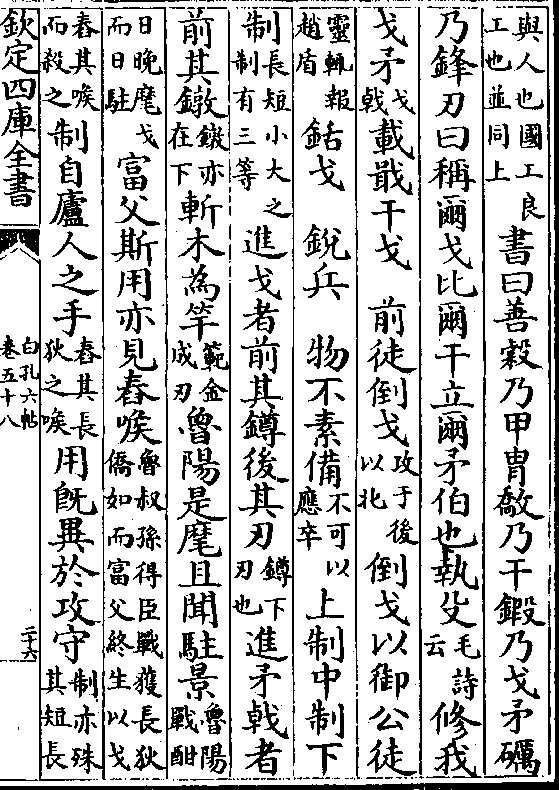 與人也國工良工也並同上書曰善穀乃甲胄敽乃干鍛乃戈矛礪
乃鋒刃曰稱爾戈比爾干立爾矛伯也執殳毛詩云修我
戈矛戈戟載戢干戈 前徒倒戈攻于後以北倒戈以御公徒
靈輒報趙盾銛戈 銳兵 物不素備不可以應卒上制中制下
制長短小大之制有三等進戈者前其鐏後其刃鐏下刃也進矛戟者
前其鐓鐓亦在下斬木為竿範金成刃魯陽是麾且聞駐景魯陽戰酣
日晚麾戈而日駐富父斯用亦見舂喉魯叔孫得臣戰獲長狄僑如而富父終生以戈
舂其喉而殺之制自廬人之手舂其長狄之喉用旣異於攻守制亦殊其短長
欽定四庫全書
白孔六帖
卷五十八
二十六